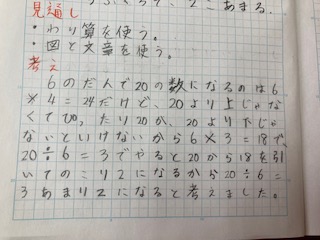 2こあまる.
見通し
・わり算を使う。
・図と文章を使う。
考え
6のだんで20の数になるのは6
×4=24だけど、20より上じゃな
くて ぴったり20か、20より下じゃ
ないといけないから6×3=18で、
20÷6=3でやると20から18を引
いてのこり2になるから20÷6=
3あまり2になると考えました。